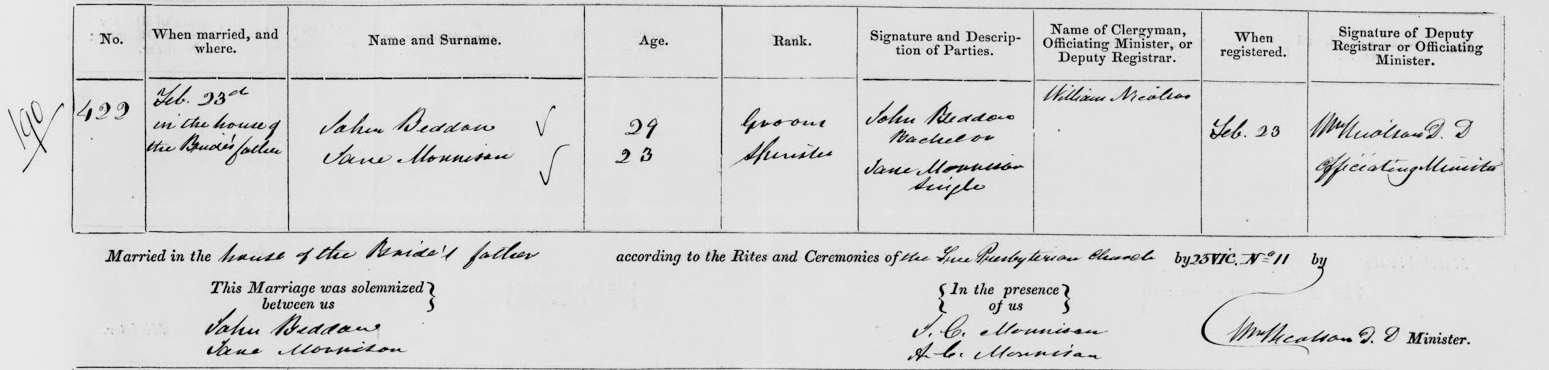 No.
When married, and where.
Name and Surname.
Age.
Rank.
Signature and Descrip-
tion of Parties.
Name of Clergyman,
Officiating Minister, or
Deputy Registrar.
When
registered.
Signature of Deputy
Registrar or Officiating
Minister.
190
422
Feb. 23d
in the house of
the Bride's father
John Beddow
Jane Morrison
29
23
Groom
Spinster
John Beddow
Bachelor
Jane Morrison
Single
William Nicolson
Feb. 23
Wm Nicolson D. D
Officiating Minister
Married in the house of the Bride's father according to the Rites and Ceremonies of the Free Presbyterian Church by 25 VIC. No 11 by
This Marriage was solemnized
between us
John Beddow
Jane Morrison
In the presence
of us
J. C. Morrison
A. C. Morrison
Wm Nicolson D. D Minister.